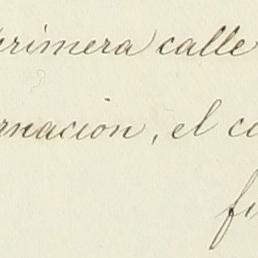 primera calle
rnacion, el co
fu